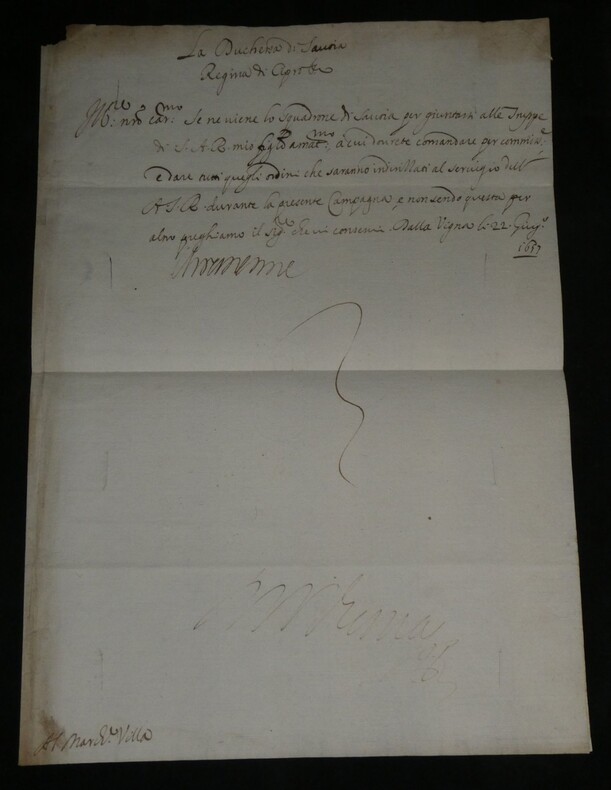 La Duchessa di Sauoia
Regina di Cipro &c
M.le nr̃o car.mo Se ne viene lo Squadrone di Sauoia per giuntarsi alle Truppe
di S. A. R. mio figl.o amat.mo a cui dourete comandare per
e dare tutti quegli ordini che saranno indirizzati al seruigio dell'
A. S. R. durante la presente Campagna, e non sendo questa per
altro preghiamo il Sig.re che vi conserui. Dalla Vigna li 22 Giug.o
1657
Chrestienne
Al March.e Villa